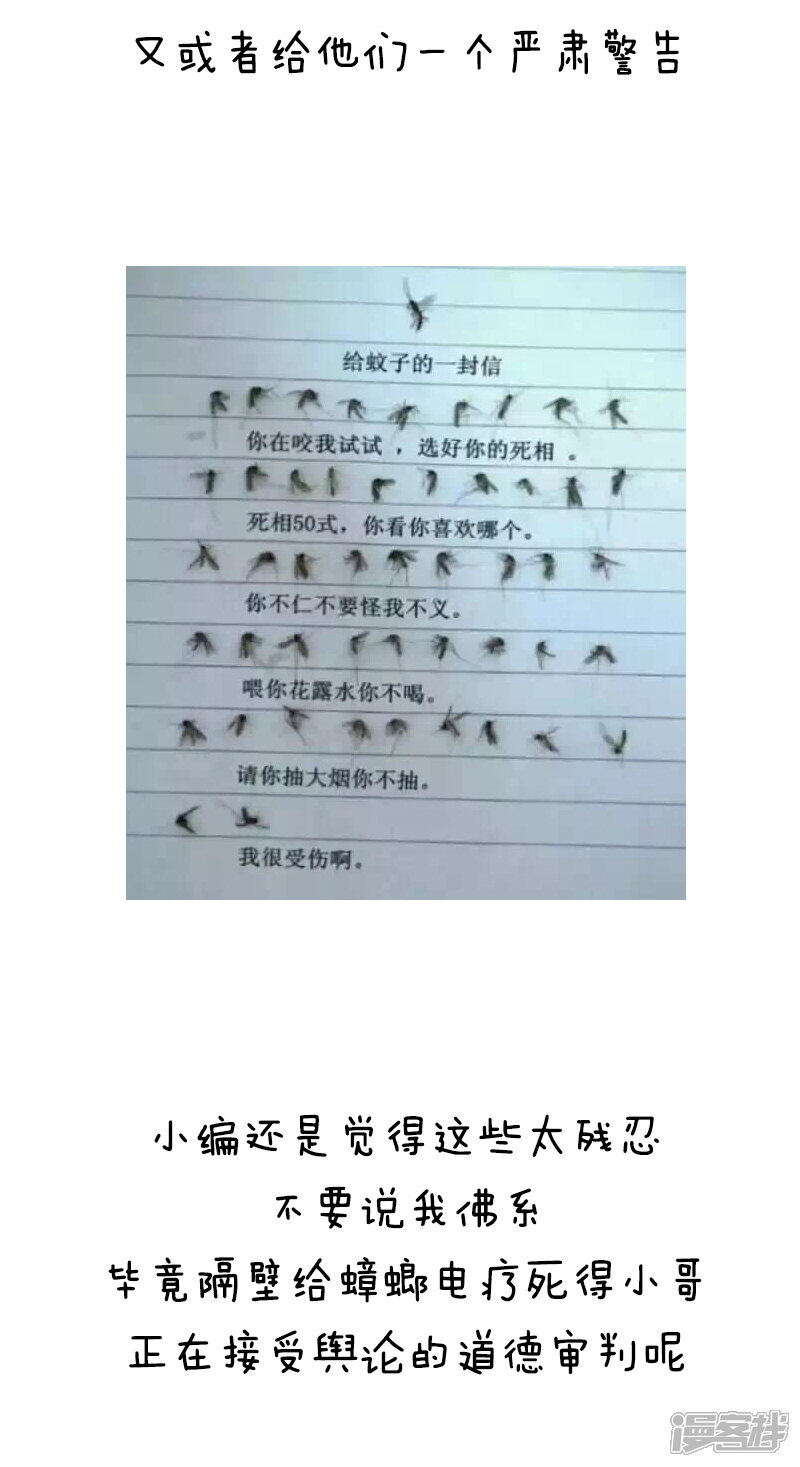 又或者给他们一个严肃警告
给蚊子的一封信
你在咬我试试，选好你的死相。
死相50式，你看你喜欢哪个。
你不仁不要怪我不义。
喂你花露水你不喝。
请你抽大烟你不抽。
我很受伤啊。
小编还是觉得这些太残忍
不要说我佛系
毕竟隔壁给蟑螂电疗死得小哥
正在接受舆论的道德审判呢
漫客栈